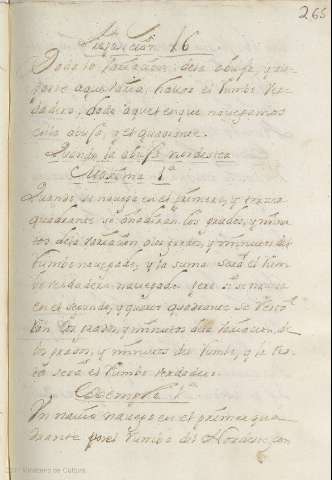 265
Proposición 16
Dada la variacion dela abuja, y la
parte aque varia, hallar el Rumbo Ver-
dadero, dado aquel en que navegamos
en la abuja, y el quadrante.
Quando la abuja nordestea
Maxima 1ª
Quando se navega en el primero, y tercer
quadrante se añadiran los grados, y minu-
tos dela variacion alos grados, y minutos del
Rumbo navegado, y la suma sera el Rum-
bo verdadero navegado, pero si se navega
en el segundo, y quarto quadrante se resta-
ran los grados, y minutos dela variacion, de
los grados, y minutos del Rumbo, y la res-
ta sera el Rumbo verdadero.
Exemplo 1º
Un navio navego en el primer qua-
drante por el Rumbo del Nordeste, con
2021 Ministerio de Cultura